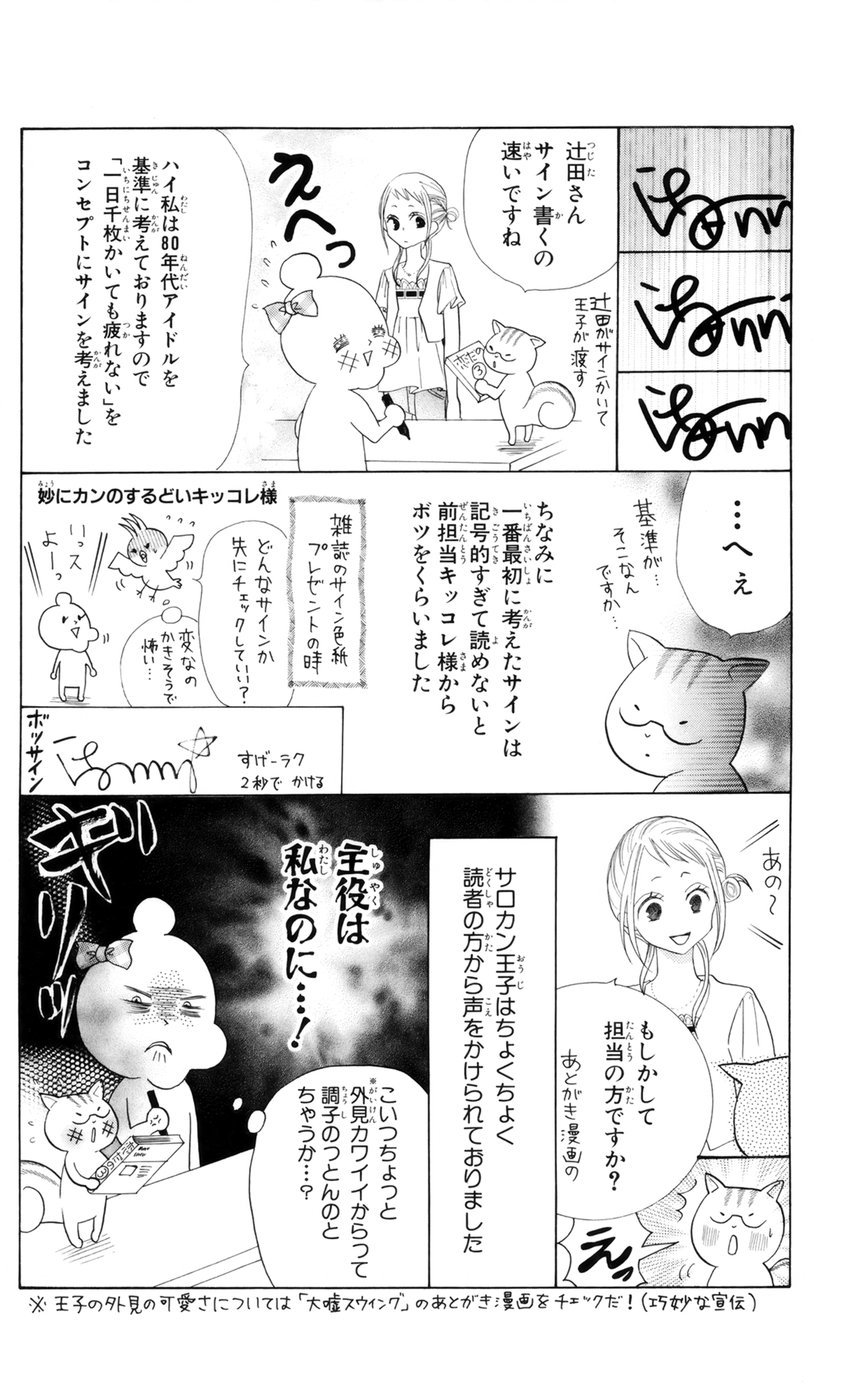 辻田さん
サイン書くの
速いですね
辻田がサインかいて
王子が渡す
えへっ
ハイ私は80年代アイドルを
基準に考えておりますので
「一日千枚かいても疲れない」を
コンセプトにサインを考えました
…へぇ
基準が…
そこなん
ですか…
ちなみに
一番最初に考えたサインは
記号的すぎて読めないと
前担当キッコレ様から
ボツをくらいました
妙にカンのするどいキッコレ様
雑誌のサイン色紙
プレゼントの時
どんなサインか
先にチェックしていい?
変なの
かきそうで
怖い…
いっス
よーっ
ボッサイン
すげーラク
2秒でかける
あの〜
もしかして
担当の方ですか?
あとがき漫画の
えっ
サロカン王子はちょくちょく
読者の方から声をかけられておりました
主役は
私なのに…!
ギリッ
こいつちょっと
※外見カワイイからって
調子のっとんのと
ちゃうか…?
※王子の外見の可愛さについては「大嘘スウイング」のあとがき漫画をチェックだ!(巧妙な宣伝)